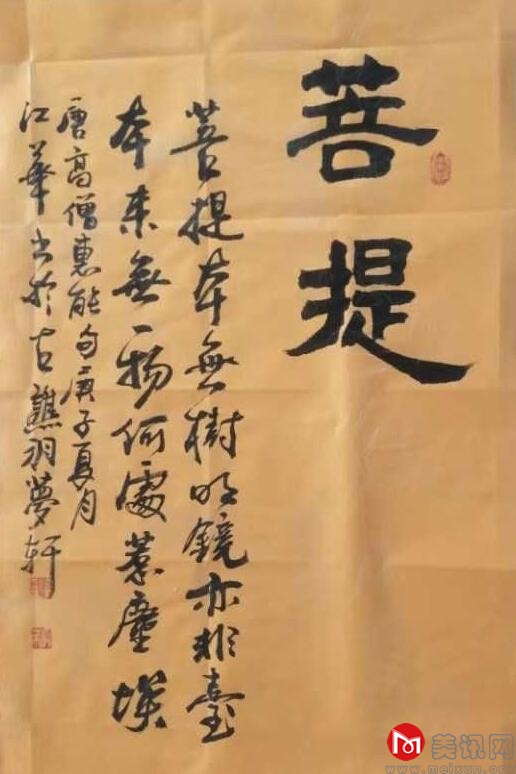 菩提
菩提本無樹明鏡亦非臺
本來無一物何處惹塵埃
唐高僧惠能句庚子夏月
江華书於古譙羽夢轩
美讯网
www.meixun.org